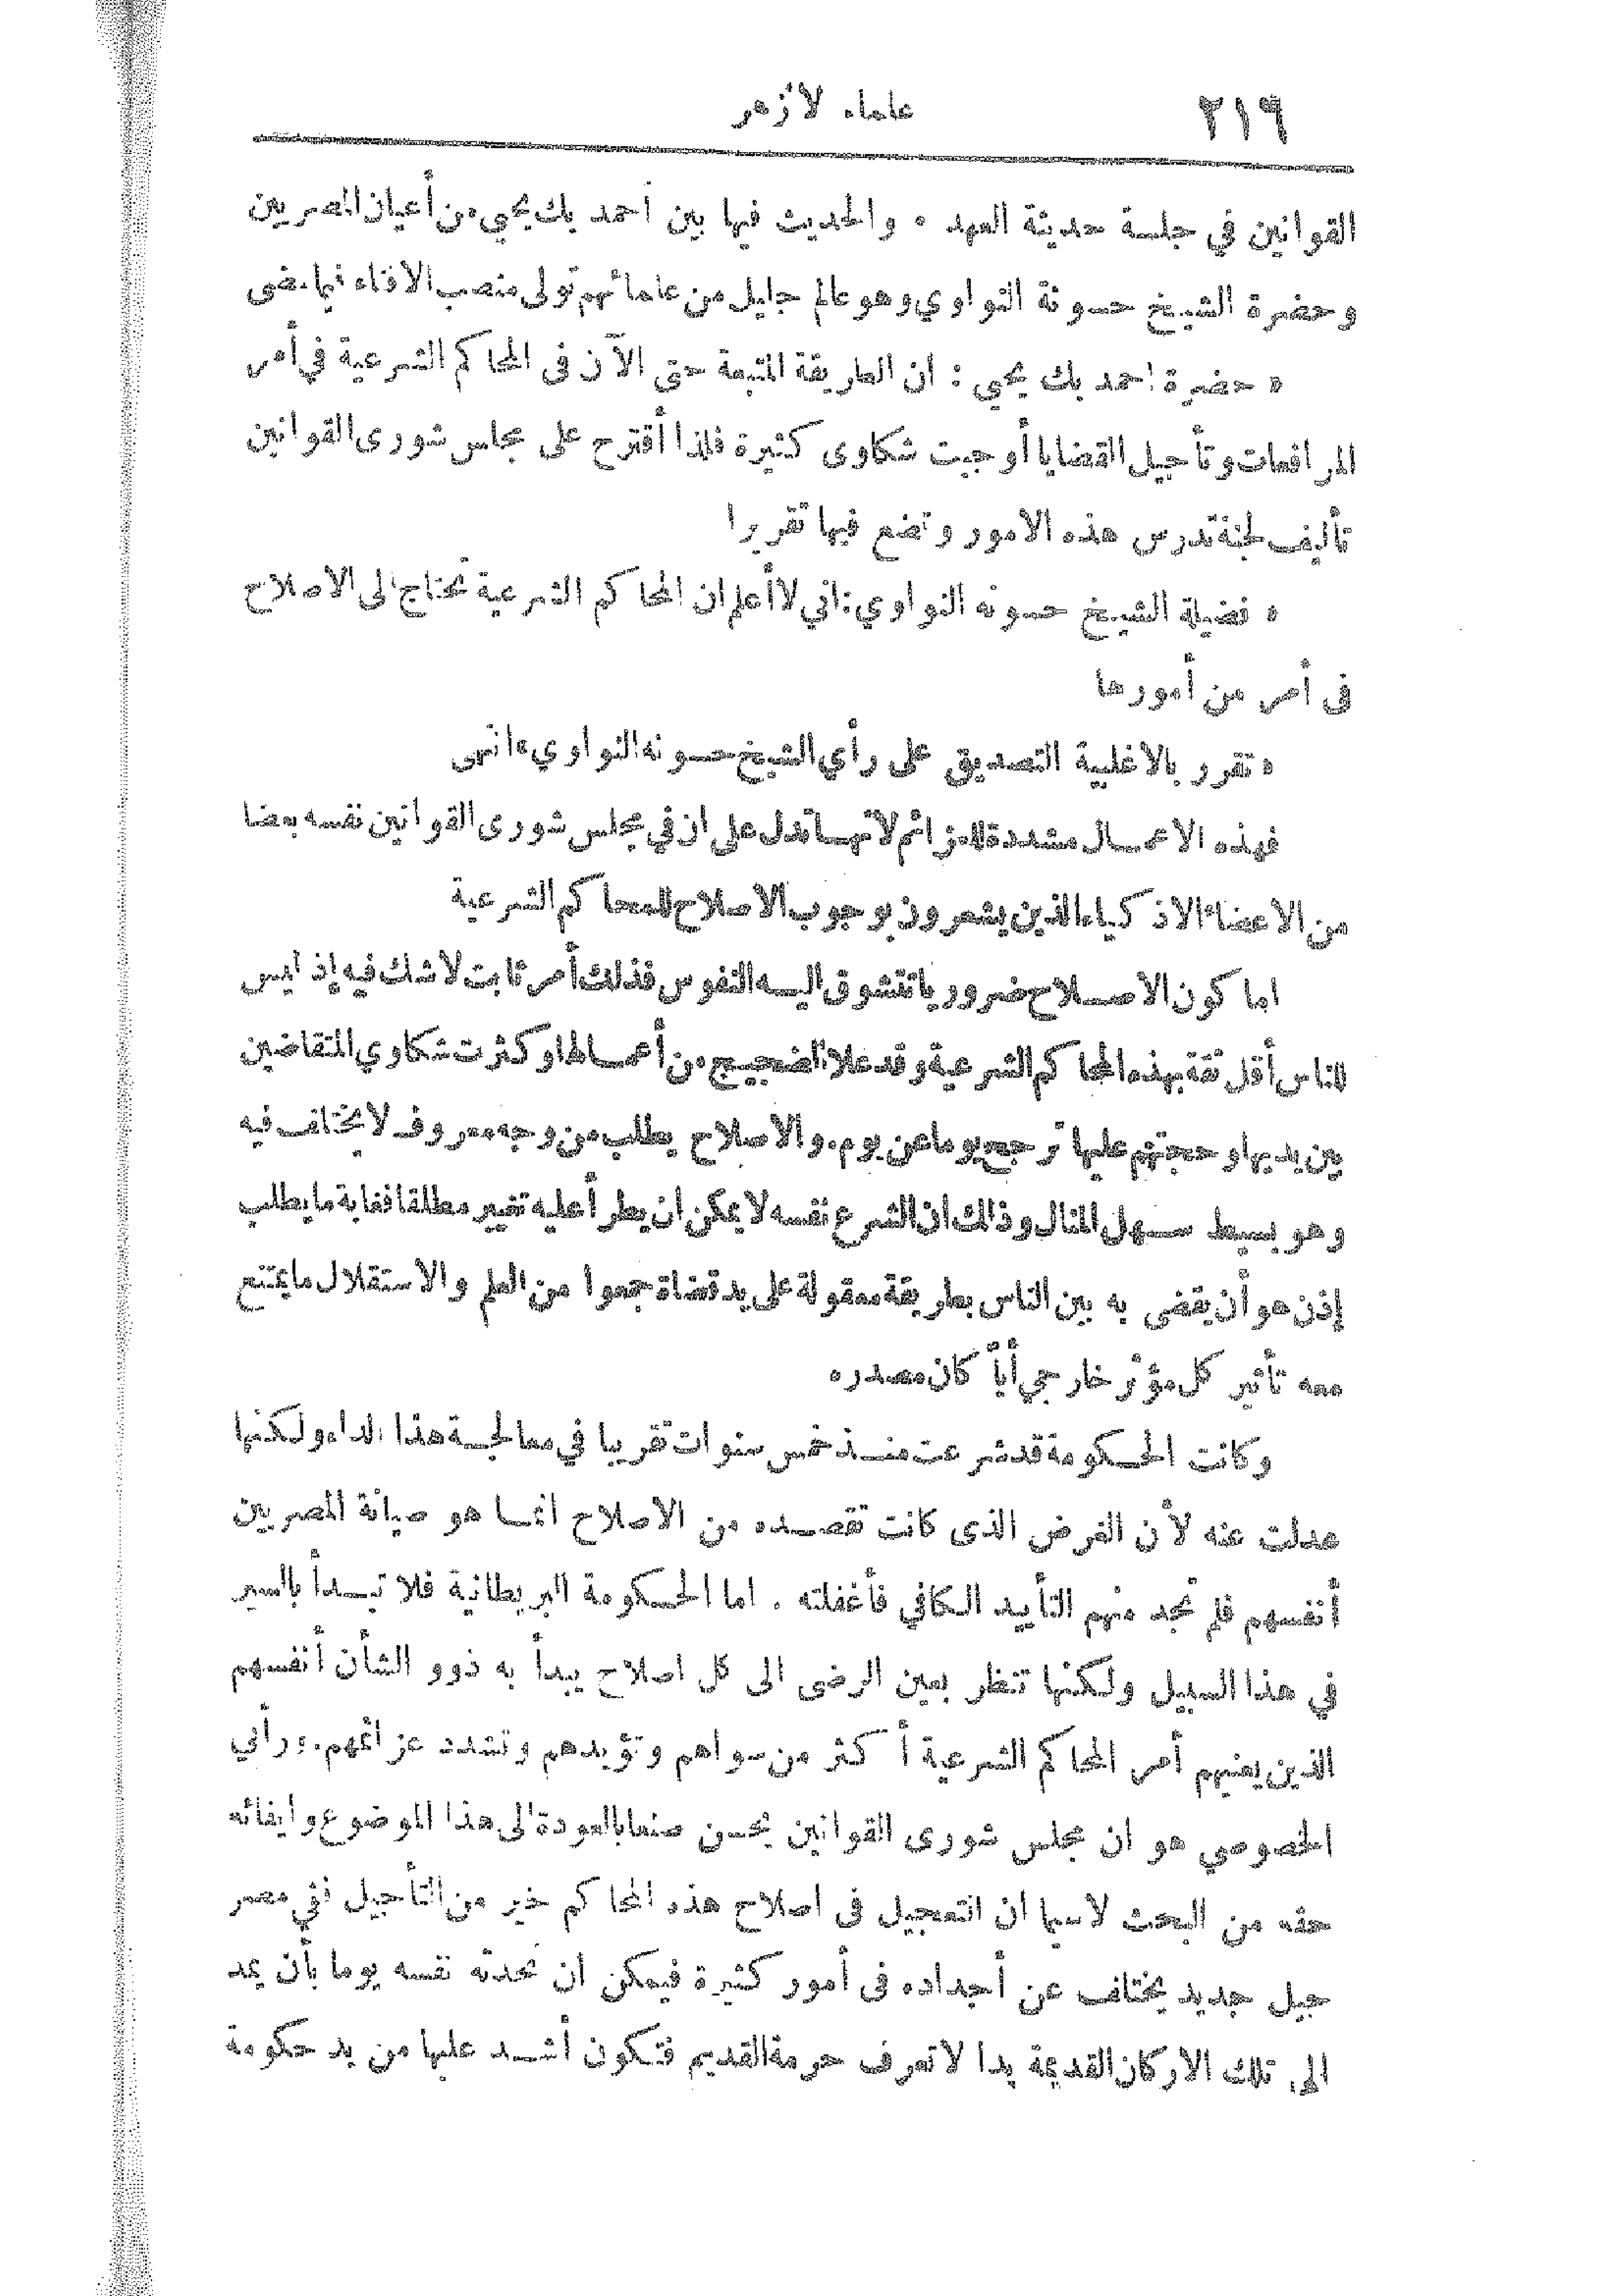 علماء لأزهر ٢١٩
القوانين في جلسة حديثة العهد . والحديث فيها بين أحمد بك يحي من أعيان المصريين
وحضرة الشيخ حسونة النواوي وهو عالم جليل من علمائهم تولى منصب الافتاء فيما مضى
« حضرة احمد بك يحي : ان الطريقة المتبعة حتى الآن فى المحاكم الشرعية في أمر
المرافعات وتأجيل القضايا أوجبت شكاوى كثيرة فلذا أقترح على مجلس شورى القوانين
تأليف لجنة تدرس هذه الامور وتضع فيها تقريرا
« فضيلة الشيخ حسونه النواوي : اني لا أعلم ان المحاكم الشرعية تحتاج الى الاصلاح
فى أمر من أمورها
« تقرر بالاغلبية التصديق على رأي الشيخ حسونه النواوي » انتهى
فهذه الاعمال مشددة للعزائم لانها تدل على ان في مجلس شورى القوانين نفسه بعضا
من الاعضاء الاذكياء الذين يشعرون بوجوب الاصلاح للمحاكم الشرعية
اما كون الاصلاح ضروريا تتشوق اليه النفوس فذلك أمر ثابت لا شك فيه إذ ليس
للناس أقل ثقة بهذه المحاكم الشرعية وقد علا الضجيج من أعمالها وكثرت شكاوي المتقاضين
بين يديها وحجتهم عليها ترجح يوما عن يوم . والاصلاح يطلب من وجه معروف لا يختلف فيه
وهو بسيط سهل المنال وذلك ان الشرع نفسه لا يمكن ان يطرأ عليه تغيير مطلقا فغاية ما يطلب
إذن هو أن يقضى به بين الناس بطريقة معقولة على يد قضاة جمعوا من العلم والاستقلال ما يمتنع
معه تأثير كل مؤثر خارجي أياً كان مصدره
وكانت الحكومة قد شرعت منذ خمس سنوات تقريبا في معالجة هذا الداء ولكنها
عدلت عنه لأن الغرض الذى كانت تقصده من الاصلاح انما هو صيانة المصريين
أنفسهم فلم تجد منهم التأييد الكافي فأغفلته . اما الحكومة البريطانية فلا تبدأ بالسير
في هذا السبيل ولكنها تنظر بعين الرضى الى كل اصلاح يبدأ به ذوو الشأن أنفسهم
الذين يعنيهم أمر المحاكم الشرعية أكثر من سواهم وتؤيدهم وتشدد عزائمهم . ورأيي
الخصوصي هو ان مجلس شورى القوانين يحسن صنعا بالعودة الى هذا الموضوع وايفائه
حقه من البحث لاسيما ان التعجيل فى اصلاح هذه المحاكم خير من التأجيل ففي مصر
جيل جديد يختلف عن أجداده فى أمور كثيرة فيمكن ان تحدثه نفسه يوما بأن يمد
الى تلك الاركان القديمة يدا لا تعرف حرمة القديم فتكون أشد عليها من يد حكومة